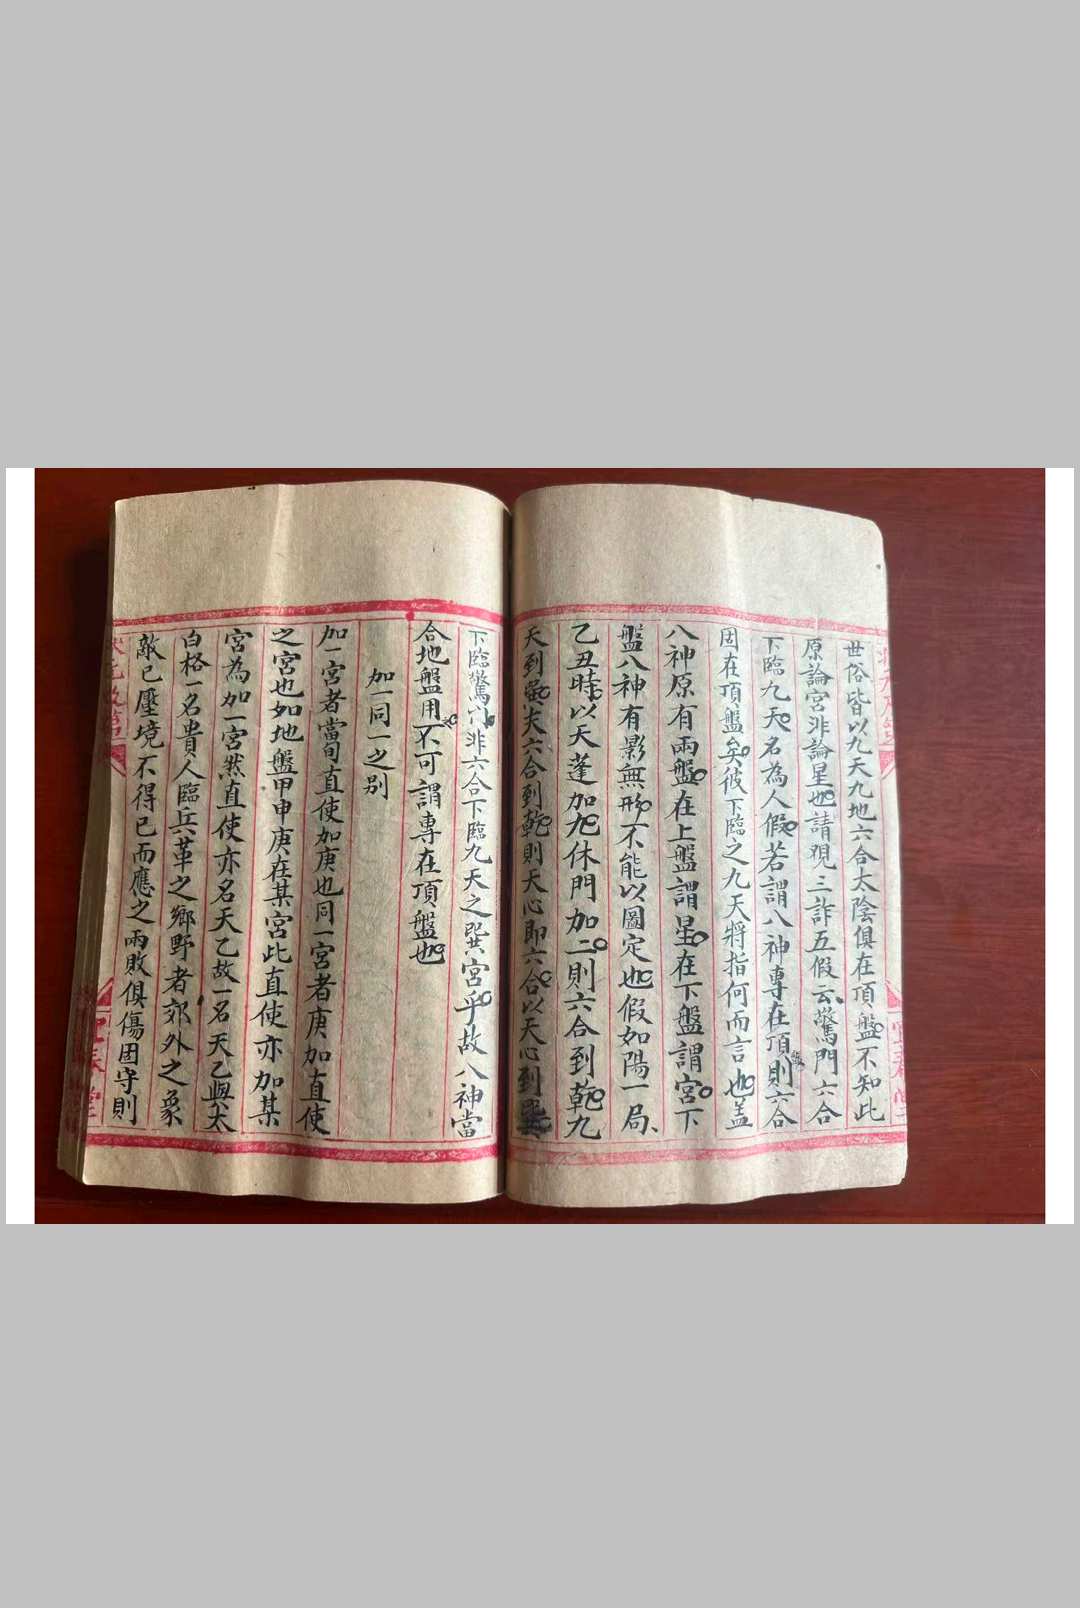 世俗皆以九天九地六合太陰俱在頂盤不知此
原論宮非論星也請視三詐五假云驚門六合
下臨九天名為人假若謂八神專在頂則六合
固在頂盤矣彼下臨之九天將指何而言也蓋
八神原有兩盤在上盤謂星在下盤謂宮下
盤八神有影無形不能以圖定也假如陽一局
乙丑時以天蓬加九休門加二則六合到乾九
天到巽夫六合到乾則天心即六合以天心到巽
下臨驚八非六合下臨九天之巽宮乎故八神當
合地盤用不可謂專在頂盤也
加一同一之別
加一宮者當旬直使加庚也同一宮者庚加直使
之宮也如地盤甲申庚在某宮此直使亦加某
宮為加一宮然直使亦名天乙故一名天乙與太
白格一名貴人臨兵革之鄉野者郊外之象
敵已壓境不得已而應之兩敗俱傷困守則